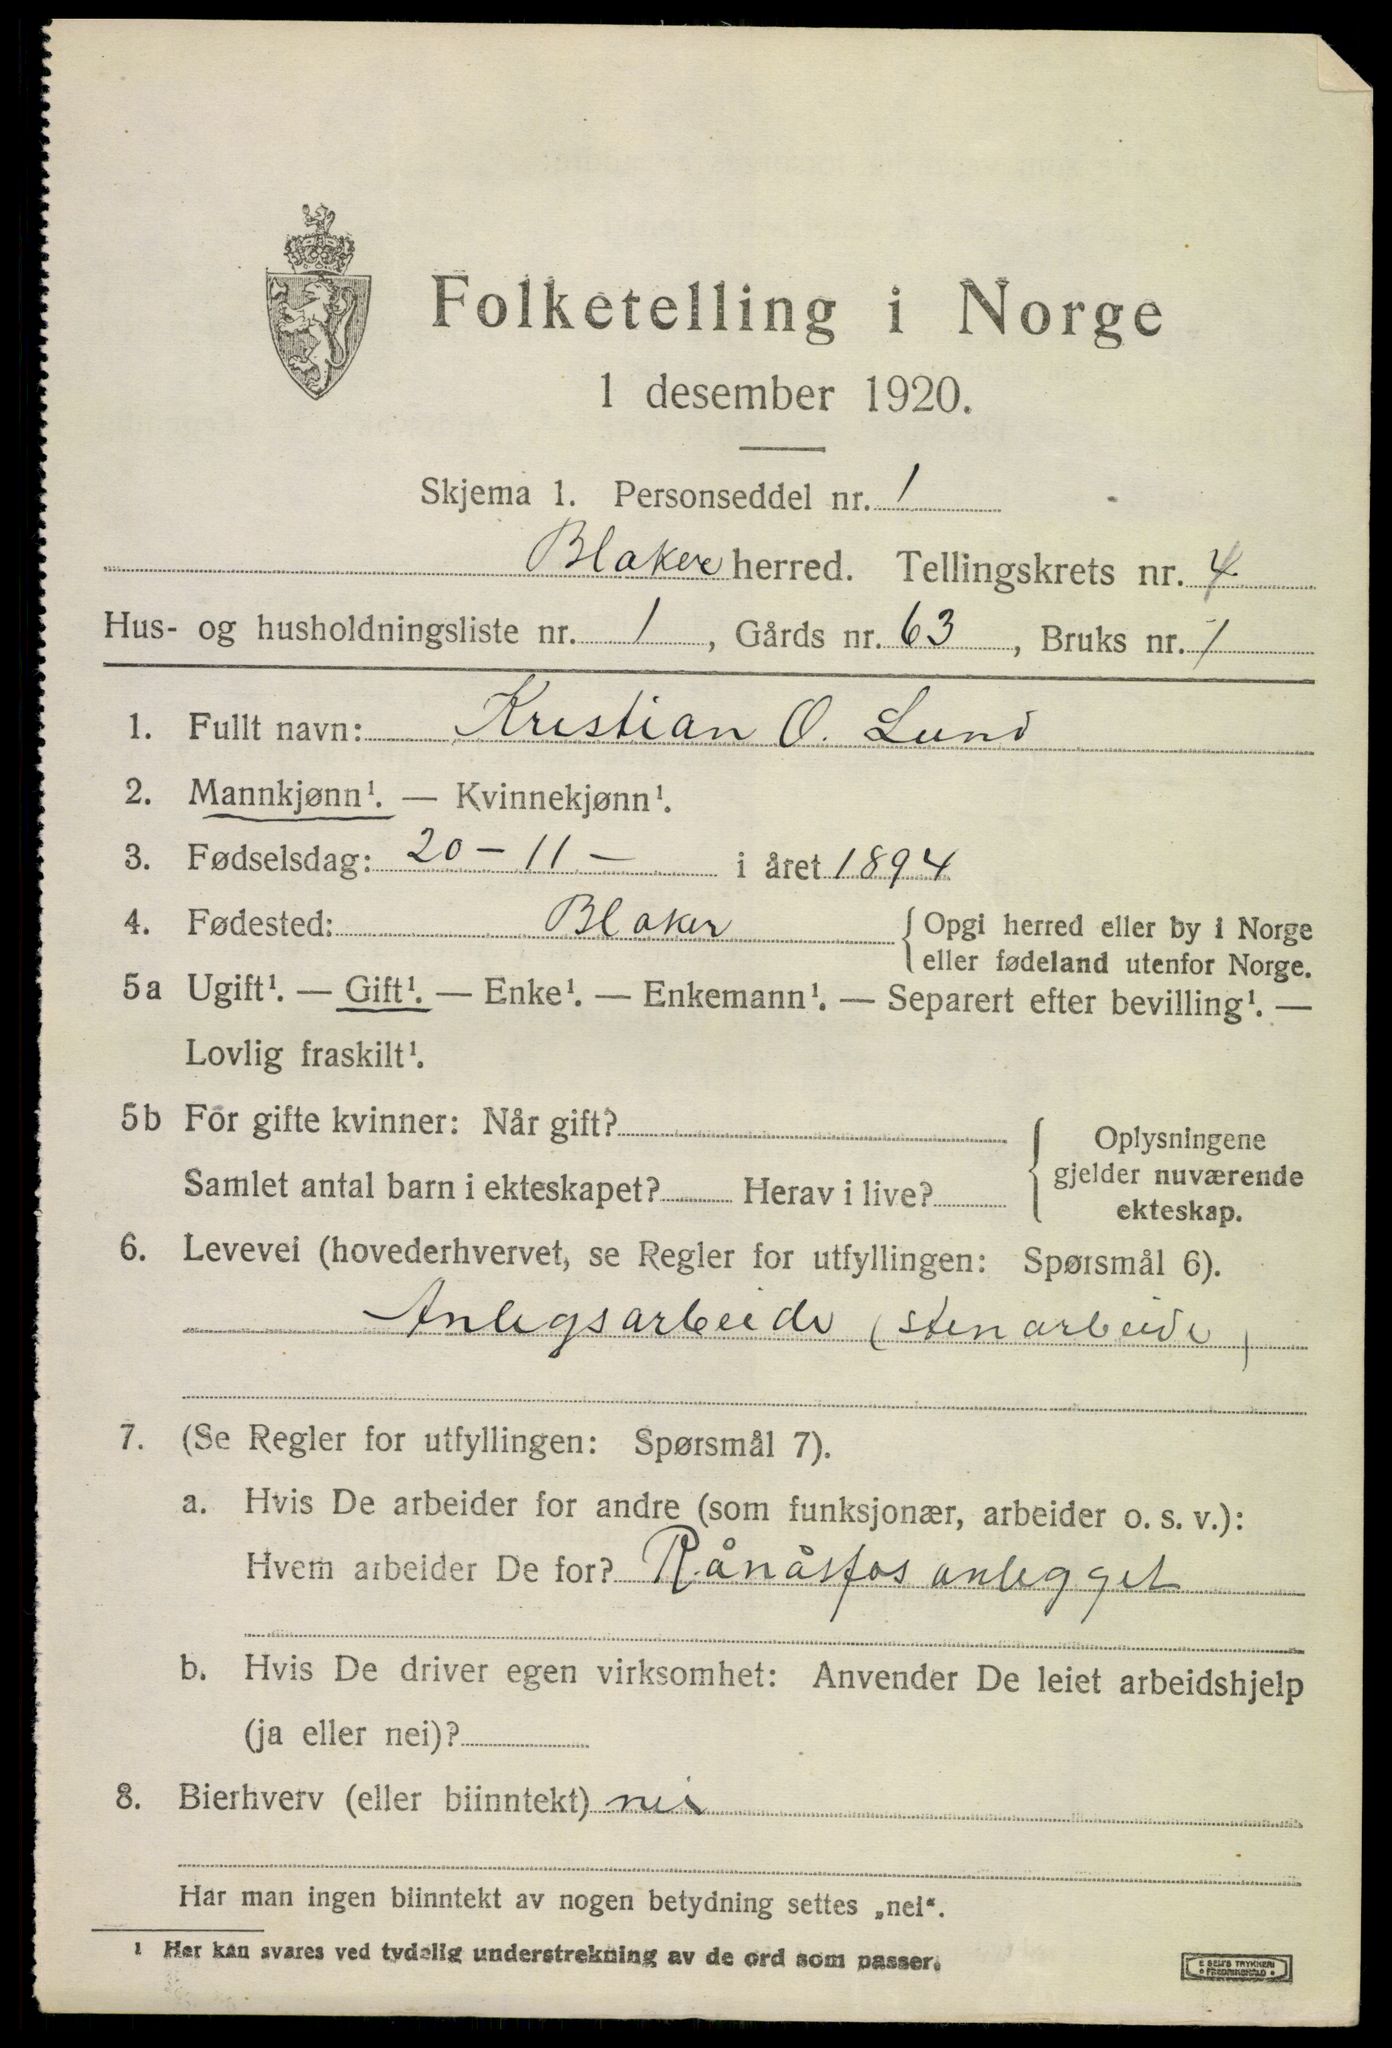 Folketelling i Norge
1 desember 1920.
Skjema 1. Personseddel nr. 1
Blaker herred. Tellingskrets nr. 4
Hus- og husholdningsliste nr. 1, Gårds nr. 63, Bruks nr. 1
1. Fullt navn: Kristian O. Lund
2. Mannkjønn¹. — Kvinnekjønn¹.
3. Fødselsdag: 20 – 11 – i året 1894
4. Fødested: Blaker { Opgi herred eller by i Norge
eller fødeland utenfor Norge.
5a Ugift¹. — Gift¹. — Enke¹. — Enkemann¹. — Separert efter bevilling¹. —
Lovlig fraskilt¹.
5b For gifte kvinner: Når gift?
Samlet antal barn i ekteskapet? Herav i live?
{ Oplysningene
gjelder nuværende
ekteskap.
6. Levevei (hovederhvervet, se Regler for utfyllingen: Spørsmål 6).
Anlegsarbeide (stenarbeide)
7. (Se Regler for utfyllingen: Spørsmål 7).
a. Hvis De arbeider for andre (som funksjonær, arbeider o. s. v.):
Hvem arbeider De for? Rånåsfos anlegget
b. Hvis De driver egen virksomhet: Anvender De leiet arbeidshjelp
(ja eller nei)?
8. Bierhverv (eller biinntekt) nei
Har man ingen biinntekt av nogen betydning settes „nei“.
1 Her kan svares ved tydelig understrekning av de ord som passer.
E SEM'S TRYKKERI
FREDRIKSHALD